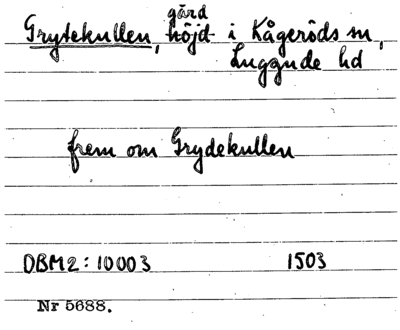 gård
Grytekullen, höjd i Kågeröds sn,
Luggude hd
frem om Grydekullen
DBM2:10003 1503
Nr 5688.